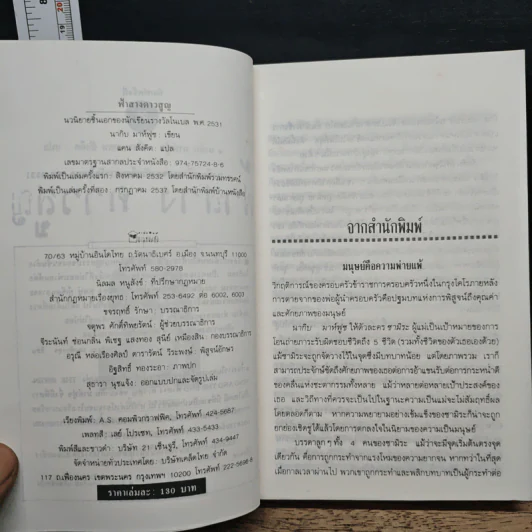 ฟ้าสางดาวสูญ
นวนิยายชิ้นเอกของนักเขียนรางวัลโนเบล พ.ศ. 2531
นากิบ มาห์ฟูซ : เขียน
แคน สังคีต : แปล
เลขมาตรฐานสากลประจำหนังสือ : 974-75724-8-6
พิมพ์เป็นเล่มครั้งแรก : สิงหาคม 2532 โดยสำนักพิมพ์รวมทรรศน์
พิมพ์เป็นเล่มครั้งที่สอง : กรกฎาคม 2537 โดยสำนักพิมพ์บ้านหนังสือ
70/63 หมู่บ้านอินไดไทย ถ.รัตนาธิเบศร์ อ.เมือง จ.นนทบุรี 11000
โทรศัพท์ 580-2978
นิลมล หนูสังข์ ที่ปรึกษากฎหมาย
สำนักกฎหมายเรืองยุทธ โทรศัพท์ 253-6492 ต่อ 6002, 6003
ขจรฤทธิ์ รักษา : บรรณาธิการ
จตุพร ศักดิ์ทิพยรัตน์ ผู้ช่วยบรรณาธิการ
ธีระนันท์ ช่อนกลิ่น พิเชฐ แสงทอง สุนีย์ เหมืองสิน : กองบรรณาธิการ
อรุณี หล่อเรืองศิลป์ ดารารัตน์ วีระพงษ์ : พิสูจน์อักษร
อิฐสิทธิ์ ทองระอา : ภาพปก
สุธารา นุชแจ้ง : ออกแบบปกและจัดรูปเล่ม
เรียงพิมพ์ : A.S. คอมพิวกราฟฟิค, โทรศัพท์ 424-5687
เพลทสี : เลย์ โปรเซท, โทรศัพท์ 433-5433
พิมพ์สีและขาวดำ : บริษัท 21 เซ็นจูรี่, โทรศัพท์ 434-9447
จัดจำหน่ายทั่วประเทศโดย : บริษัทเคล็ดไทย จำกัด
117 ถ.เฟื่องนคร เขตพระนคร กรุงเทพฯ 10200 โทรศัพท์ 222-5698-9
ราคาเล่มละ : 130 บาท
จากสำนักพิมพ์
มนุษย์คือความพ่ายแพ้
วิกฤติการณ์ของครอบครัวข้าราชการครอบครัวหนึ่งในกรุงไคโรภายหลัง
การตายจากของพ่อผู้นำครอบครัวคือปฐมบทแห่งการพิสูจน์ถึงคุณค่า
และศักยภาพของมนุษย์
นากิบ มาห์ฟูซ ให้ตัวละคร ซามีระ ผู้แม่เป็นเป้าหมายของการ
โอนถ่ายภาระรับผิดชอบชีวิตถึง 5 ชีวิต (รวมทั้งชีวิตของตัวเธอเองด้วย)
แม้ซามีระจะถูกจัดวางไว้ในจุดซึ่งมีบทบาทน้อย แต่โดยภาพรวม เราก็
สามารถประจักษ์ชัดถึงศักยภาพของเธอต่อการอ้าแขนรับต่อการกระหน่ำตี
ของคลื่นแห่งชะตากรรมทั้งหลาย แม้ว่าหลายต่อหลายเป้าประสงค์ของ
เธอ และวิถีทางที่ควรจะเป็นไปในฐานะความเป็นแม่จะไม่สัมฤทธิ์ผล
โดยตลอดก็ตาม หากความพยายามอย่างเข้มแข็งของซามีระก็น่าจะถูก
ยกย่องเชิดชูได้แล้วโดยการตกลงใจในนิยามของความเป็นมนุษย์
บรรดาลูกๆ ทั้ง 4 คนของซามีระ แม้ว่าจะมีจุดเริ่มต้นตรงจุด
เดียวกัน คือการถูกกระทำจากแรงโหมของความยากจน หากทว่าในที่สุด
เมื่อกาลเวลาผ่านไป พวกเขาถูกกระทำและพลิกบทบาทเป็นผู้กระทำต่อ